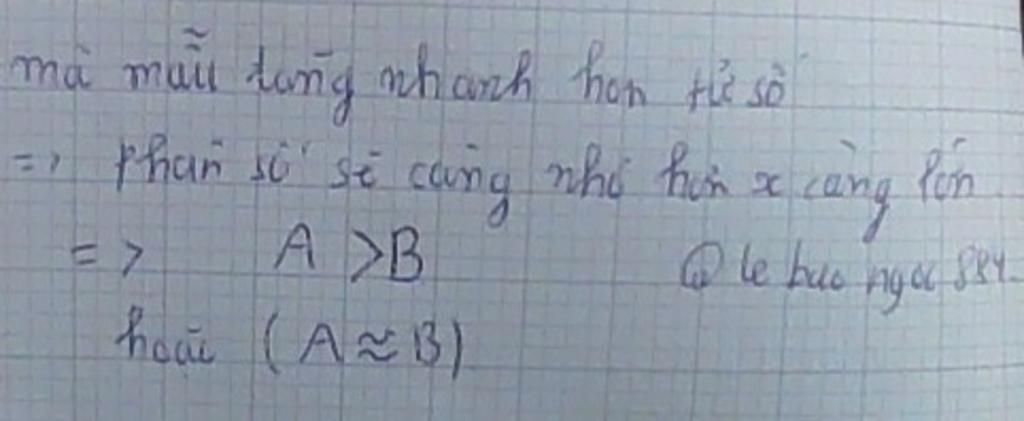 mà mẫu tăng nhanh hơn tử số
=> phân số sẽ càng nhỏ hơn x càng lớn
=> A > B @ le bao ngoc 884
hoặc (A ≈ B)